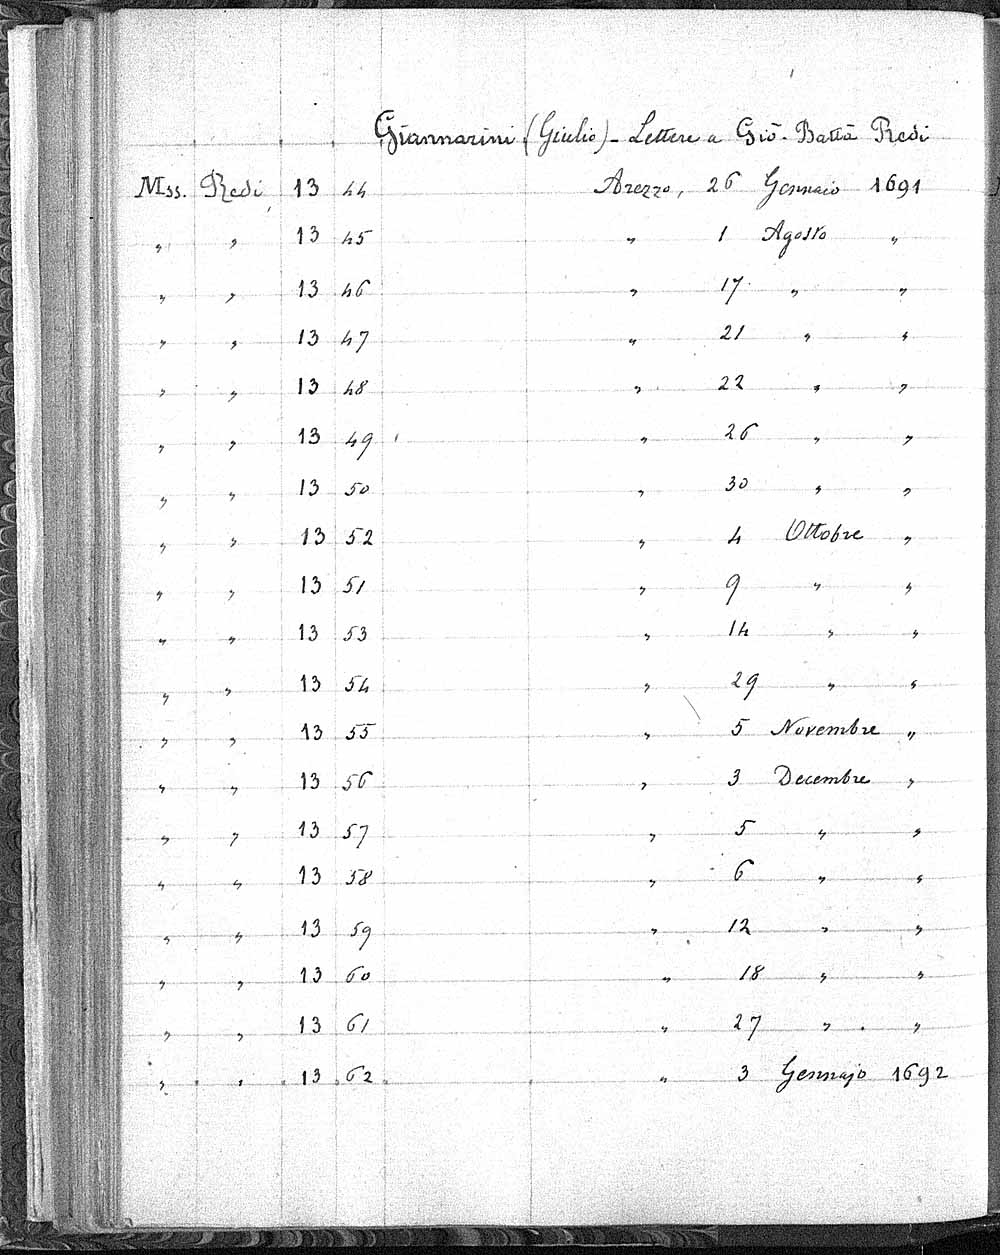 Giannarini (Giulio) - Lettere a Giō. Battā Redi
Mss. Redi 13 44 Arezzo, 26 Gennaio 1691
„ „ 13 45 „ 1 Agosto „
„ „ 13 46 „ 17 „ „
„ „ 13 47 „ 21 „ „
„ „ 13 48 „ 22 „ „
„ „ 13 49 „ 26 „ „
„ „ 13 50 „ 30 „ „
„ „ 13 52 „ 4 Ottobre „
„ „ 13 51 „ 9 „ „
„ „ 13 53 „ 14 „ „
„ „ 13 54 „ 29 „ „
„ „ 13 55 „ 5 Novembre „
„ „ 13 56 „ 3 Decembre „
„ „ 13 57 „ 5 „ „
„ „ 13 58 „ 6 „ „
„ „ 13 59 „ 12 „ „
„ „ 13 60 „ 18 „ „
„ „ 13 61 „ 27 „ „
„ „ 13 62 „ 3 Gennajo 1692